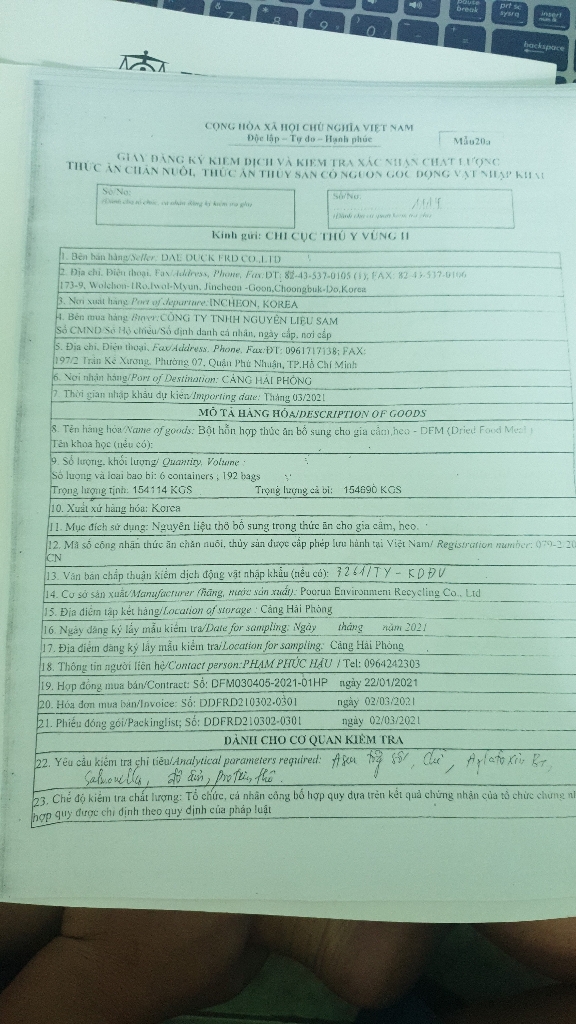 CỘNG HÒA XÃ HỘI CHỦ NGHĨA VIỆT NAM
Độc lập – Tự do – Hạnh phúc
Mẫu20a
GIẤY ĐĂNG KÝ KIỂM DỊCH VÀ KIỂM TRA XÁC NHẬN CHẤT LƯỢNG
THỨC ĂN CHĂN NUÔI, THỨC ĂN THỦY SẢN CÓ NGUỒN GỐC ĐỘNG VẬT NHẬP KHẨU
Số/No:
(Dành cho tổ chức, cá nhân đăng ký kiểm tra ghi)
Số/No:
(Dành cho cơ quan kiểm tra ghi)
Kính gửi: CHI CỤC THÚ Y VÙNG II
1. Bên bán hàng/Seller: DAE DUCK FRD CO.,LTD
2. Địa chỉ, Điện thoại, Fax/Address, Phone, Fax: ĐT: 82-43-537-0105 (1); FAX: 82-43-537-0106
173-9, Wolchon-1Ro,Iwol-Myun, Jincheon -Goon,Choongbuk-Do,Korea
3. Nơi xuất hàng/Port of departure: INCHEON, KOREA
4. Bên mua hàng/Buyer: CÔNG TY TNHH NGUYÊN LIỆU SAM
Số CMND/Số Hộ chiếu/Số định danh cá nhân, ngày cấp, nơi cấp
5. Địa chỉ, Điện thoại, Fax/Address, Phone, Fax: ĐT: 0961717138; FAX:
197/2 Trần Kế Xương, Phường 07, Quận Phú Nhuận, TP.Hồ Chí Minh
6. Nơi nhận hàng/Port of Destination: CẢNG HẢI PHÒNG
7. Thời gian nhập khẩu dự kiến/Importing date: Tháng 03/2021
MÔ TẢ HÀNG HÓA/DESCRIPTION OF GOODS
8. Tên hàng hóa/Name of goods: Bột hỗn hợp thức ăn bổ sung cho gia cầm,heo - DFM (Dried Food Meal)
Tên khoa học (nếu có):
9. Số lượng, khối lượng/ Quantity, Volume :
Số lượng và loại bao bì: 6 containers ; 192 bags
Trọng lượng tịnh: 154114 KGS Trọng lượng cả bì: 154690 KGS
10. Xuất xứ hàng hóa: Korea
11. Mục đích sử dụng: Nguyên liệu thô bổ sung trong thức ăn cho gia cầm, heo.
12. Mã số công nhận thức ăn chăn nuôi, thủy sản được cấp phép lưu hành tại Việt Nam/ Registration number: 079-2/20
CN
13. Văn bản chấp thuận kiểm dịch động vật nhập khẩu (nếu có): 3261/TY - KDĐV
14. Cơ sở sản xuất/Manufacturer (hãng, nước sản xuất): Poorun Environment Recycling Co., Ltd
15. Địa điểm tập kết hàng/Location of storage : Cảng Hải Phòng
16. Ngày đăng ký lấy mẫu kiểm tra/Date for sampling: Ngày tháng năm 2021
17. Địa điểm đăng ký lấy mẫu kiểm tra/Location for sampling: Cảng Hải Phòng
18. Thông tin người liên hệ/Contact person: PHẠM PHÚC HẬU / Tel: 0964242303
19. Hợp đồng mua bán/Contract: Số: DFM030405-2021-01HP ngày 22/01/2021
20. Hóa đơn mua bán/Invoice: Số: DDFRD210302-0301 ngày 02/03/2021
21. Phiếu đóng gói/Packinglist; Số: DDFRD210302-0301 ngày 02/03/2021
DÀNH CHO CƠ QUAN KIỂM TRA
22. Yêu cầu kiểm tra chỉ tiêu/Analytical parameters required: Asen tổng số, Chì, Aflatoxin B1,
Salmonella, protein thô.
23. Chế độ kiểm tra chất lượng: Tổ chức, cá nhân công bố hợp quy dựa trên kết quả chứng nhận của tổ chức chứng nh
hợp quy được chỉ định theo quy định của pháp luật